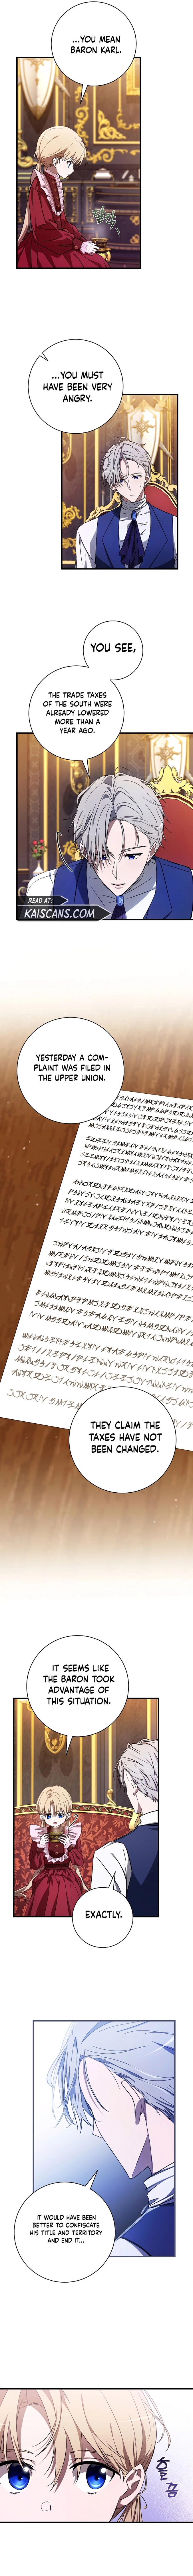 ...YOU MEAN
BARON KARL.
펄럭
...YOU MUST
HAVE BEEN VERY
ANGRY.
YOU SEE,
THE TRADE TAXES
OF THE SOUTH WERE
ALREADY LOWERED
MORE THAN A
YEAR AGO.
READ AT:
KAISCANS.COM
YESTERDAY A COM-
PLAINT WAS FILED IN
THE UPPER UNION.
THEY CLAIM THE
TAXES HAVE NOT
BEEN CHANGED.
IT SEEMS LIKE
THE BARON TOOK
ADVANTAGE OF
THIS SITUATION.
EXACTLY.
IT WOULD HAVE BEEN
BETTER TO CONFISCATE
HIS TITLE AND TERRITORY
AND END IT...
흠끔